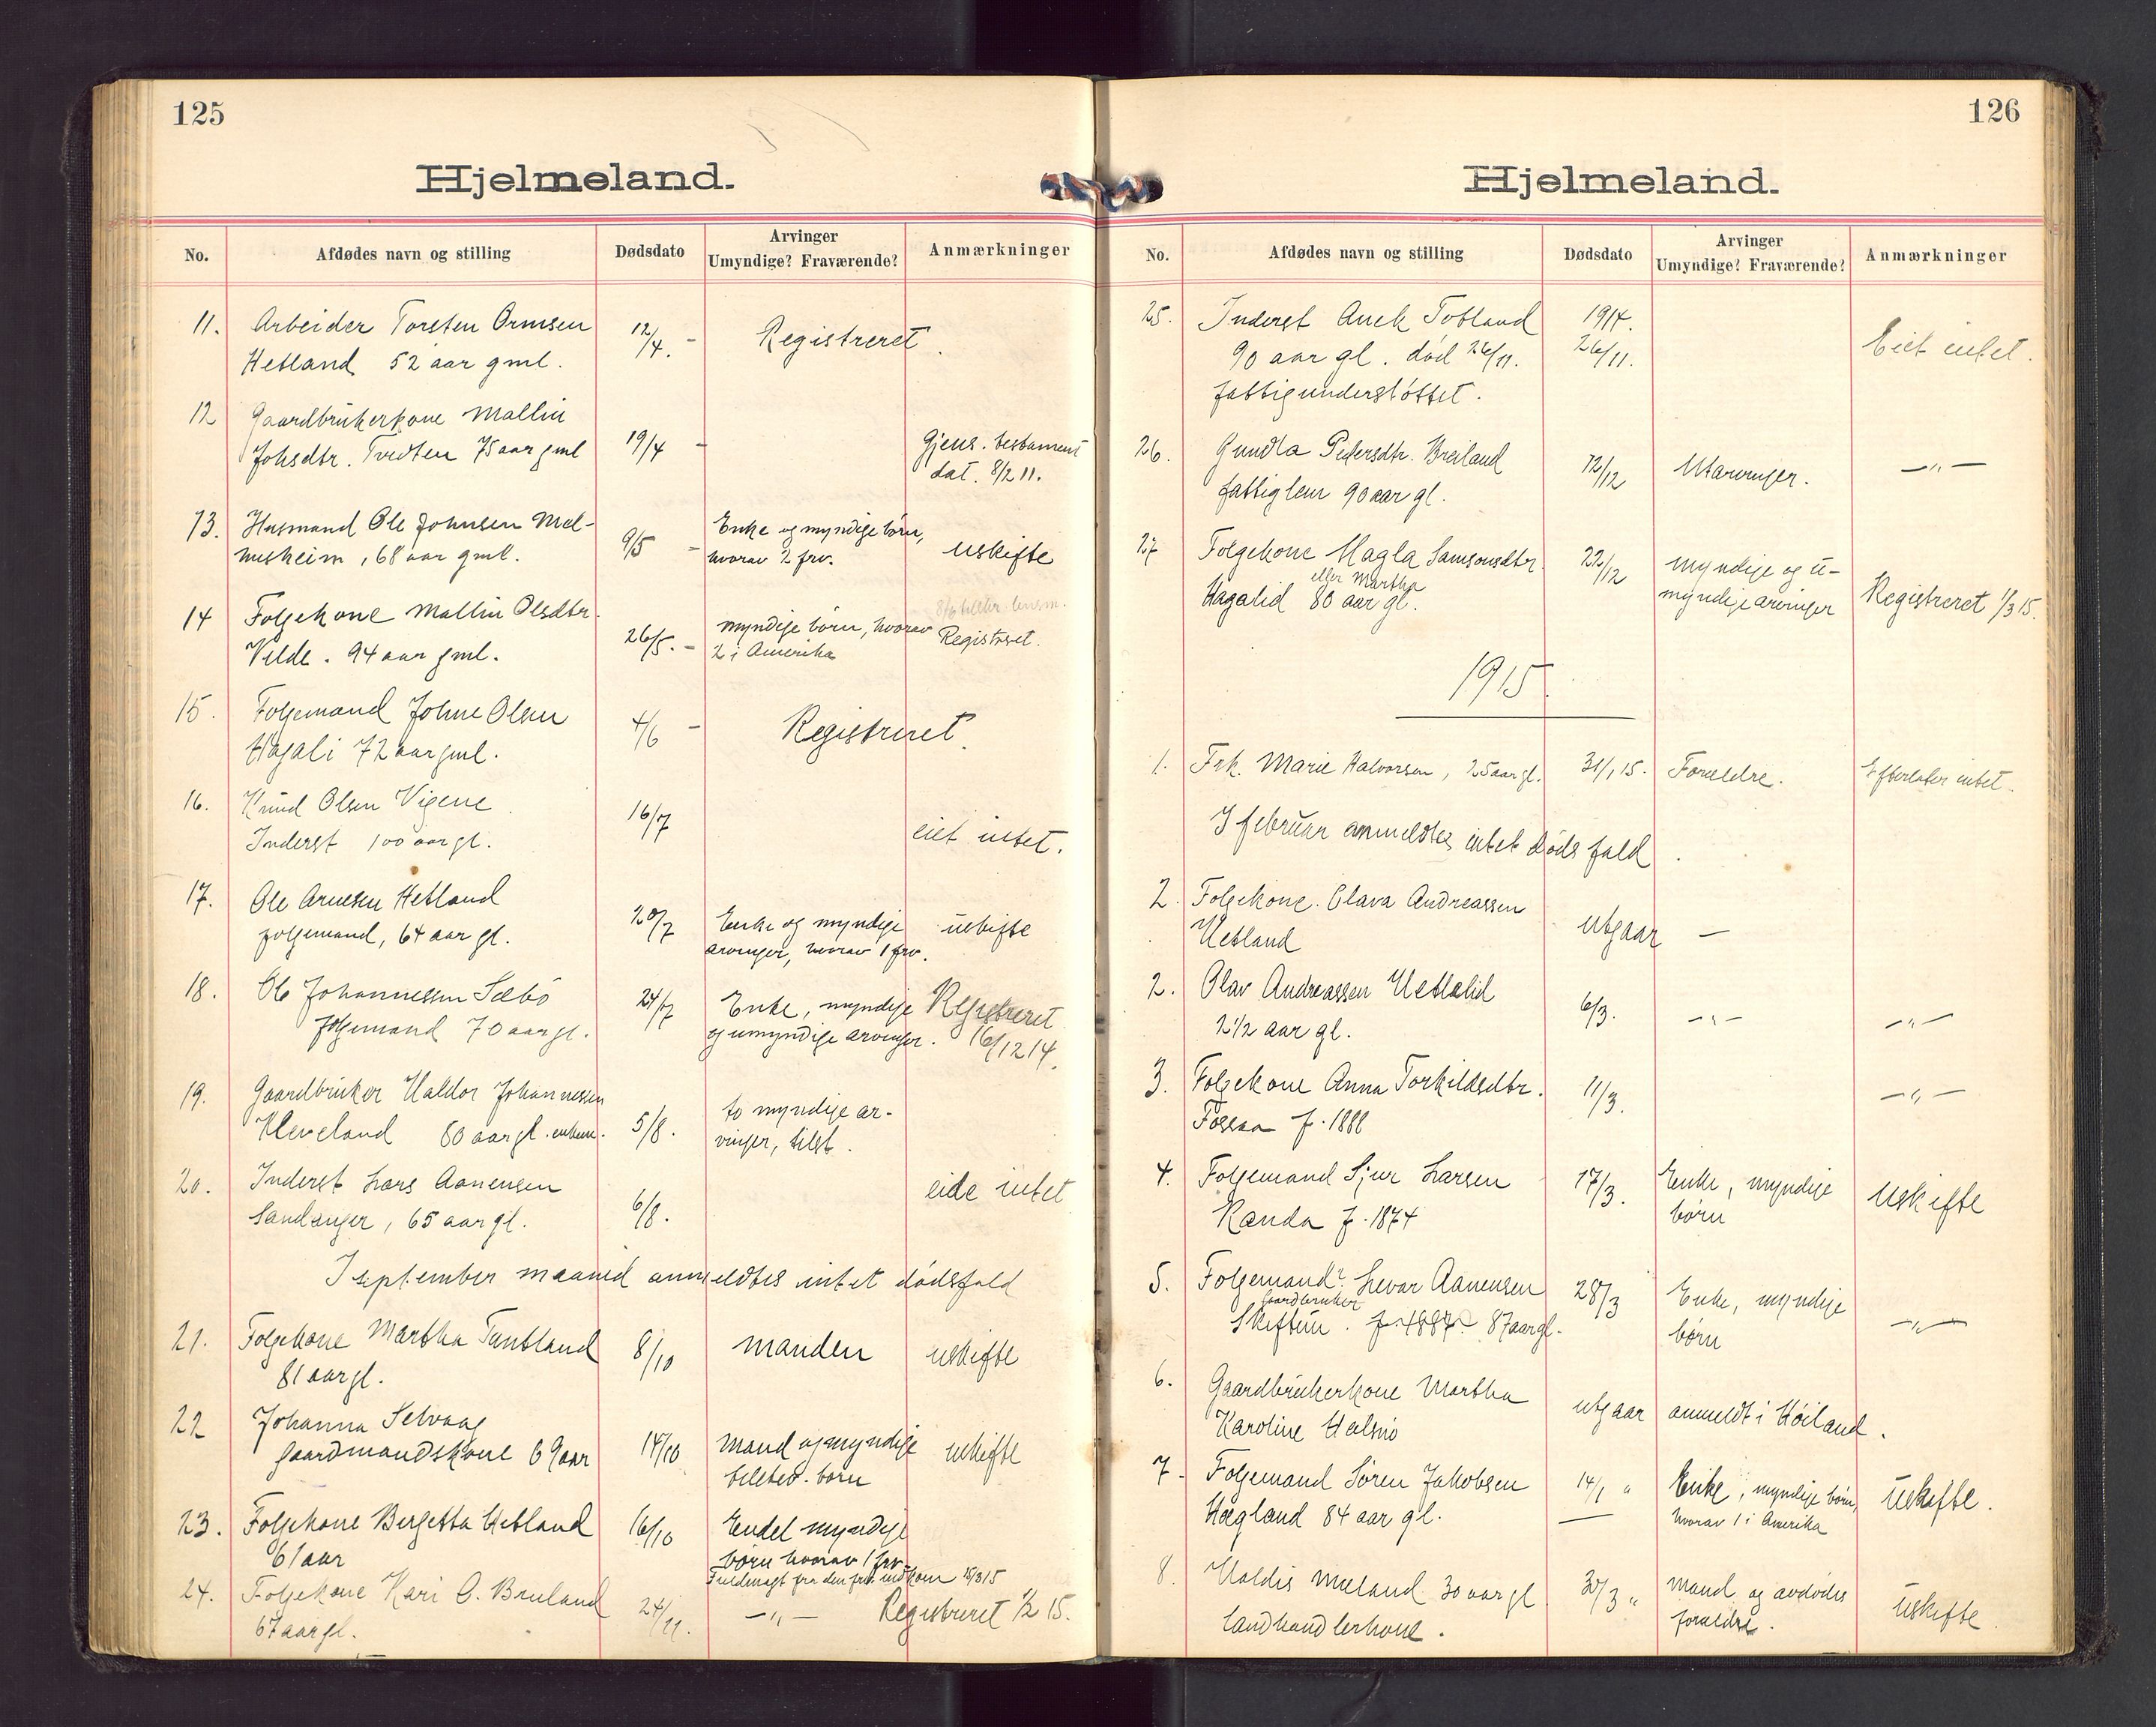 125
Hjelmeland.
No.
Afdødes navn og stilling
Dødsdato
Arvinger
Umyndige? Fraværende?
Anmærkninger
11. Arbeider Torsten Ormsen 12/4. - Registreret.
Hetland 52 aar gml.
12 Gaardbrukerkone Mallin
Johsdtr. Tveten 75 aar gml 19/4 - Gjens. testament
dat. 8/2 11.
13. Husmand Ole Johnsen Mel- 9/5 - Enke og myndige børn, uskifte
husheim, 68 aar gml. hvorav 2 frv.
14 Folgekone Mallin Olsdtr. 26/5. - myndige børn, hvorav Registreret.
Velde. 94 aar gml. 2 i Amerika
15. Folgemand Johne Olsen 4/6 - Registreret.
Hagali 72 aar gml.
16. Knud Olsen Vigene 16/7
Inderst 100 aar gl. eiet intet.
17. Ole Arnesen Hetland
folgemand, 64 aar gl. 20/7 Enke og myndige uskifte
arvinger, hvorav 1 frv.
18. Ole Johannessen Sæbø 24/7 Enke, myndige Registreret
folgemand 70 aar gl. og umyndige arvinger. 16/12 14.
19. Gaardbruker Haldor Johannessen
Kleveland 80 aar gl. enkem. 5/8. to myndige ar-
vinger, tilst.
20. Inderst Lars Aanensen eide intet
Sandanger, 65 aar gl. 6/8.
I september maaned anmeldtes intet dødsfald
21. Folgekone Martha Tuntland 8/10 manden uskifte
81 aar gl.
22 Johanna Selvaag
gaardmandskone 69 aar 14/10 Mand og myndige uskifte
tilsted. børn
23. Folgekone Bergetta Hetland 16/10 Endel myndige
61 aar børn hvorav 1 frv.
Fuldmagt fra den frv. indkom 15/3 15
24. Folgekone Kari O. Bruland 24/11. -"- Registreret 1/2 15.
67 aar gl.
126
Hjelmeland.
No.
Afdødes navn og stilling
Dødsdato
Arvinger
Umyndige? Fraværende?
Anmærkninger
25. Inderst Anek Totland 1914.
90 aar gl. død 26/11. 26/11. Eiet intet.
fattigunderstøttet.
26. Gundla Pedersdtr. Breiland 12/12 Utarvinger. -"-
fattiglem 90 aar gl.
27 Folgekone Magla Samsonsdtr. 22/12 myndige og u-
eller Martha
Hagalid 80 aar gl. myndige arvinger Registreret 1/3 15.
1915.
1. Frk. Marie Halvorsen, 25 aar gl. 31/1 15. Foreldre. Efterlater intet.
I februar anmeldtes intet dødsfald.
2. Folgekone. Olava Andreassen
Hetland utgaar -
2. Olav Andreassen Uetlelid 6/3. -"- -"-
2 1/2 aar gl.
3. Folgekone Anna Torkildsdtr. 11/3. -"-
Fossan f. 1888
4. Folgemand Sjur Larsen 17/3. Enke, myndige uskifte
Randa f. 1874 børn
5. Folgemand? Levar Aanensen 28/3 Enke, myndige
gaardbruker
Skiftun. f. 1887. 87 aar gl. børn -"-
6. Gaardbrukerkone Martha utgaar anmeldt i Høiland.
Karoline Halsnø
7. Folgemand Søren Jakobsen 14/1 " Enke, myndige børn, Uskifte.
Hægland 84 aar gl. hvorav 1 i Amerika
8. Valdis Meland 30 aar gl 30/3 " mand og avdødes Uskifte.
landhandlerkone. foreldre.